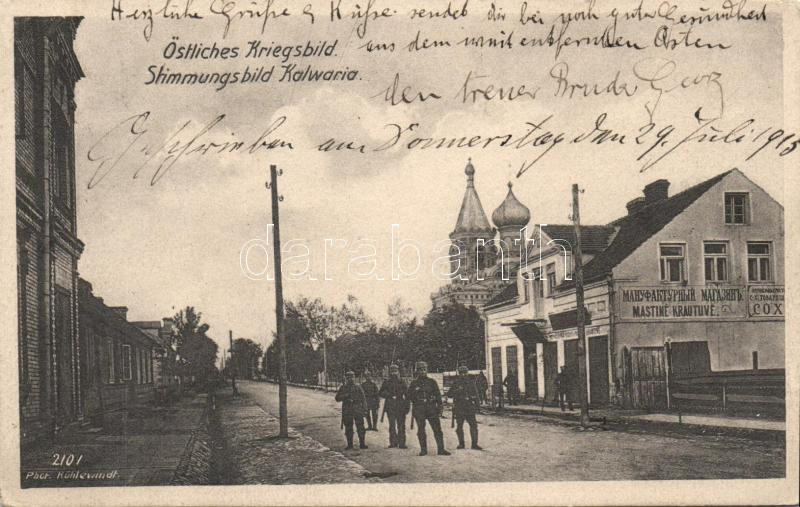 Herzliche Grüße & Küsse sendet dir bei noch guter Gesundheit
aus dem weit entfernten Osten
den treuer Bruder Georg
Geschrieben am Donnerstag den 29. Juli 1915
Östliches Kriegsbild.
Stimmungsbild Kalwaria.
darabanth
МАНУФАКТУРНЫЙ МАГАЗИНЪ
MASTINĖ KRAUTUVĖ
СОХ
2101
Phot. Kühlewindt.